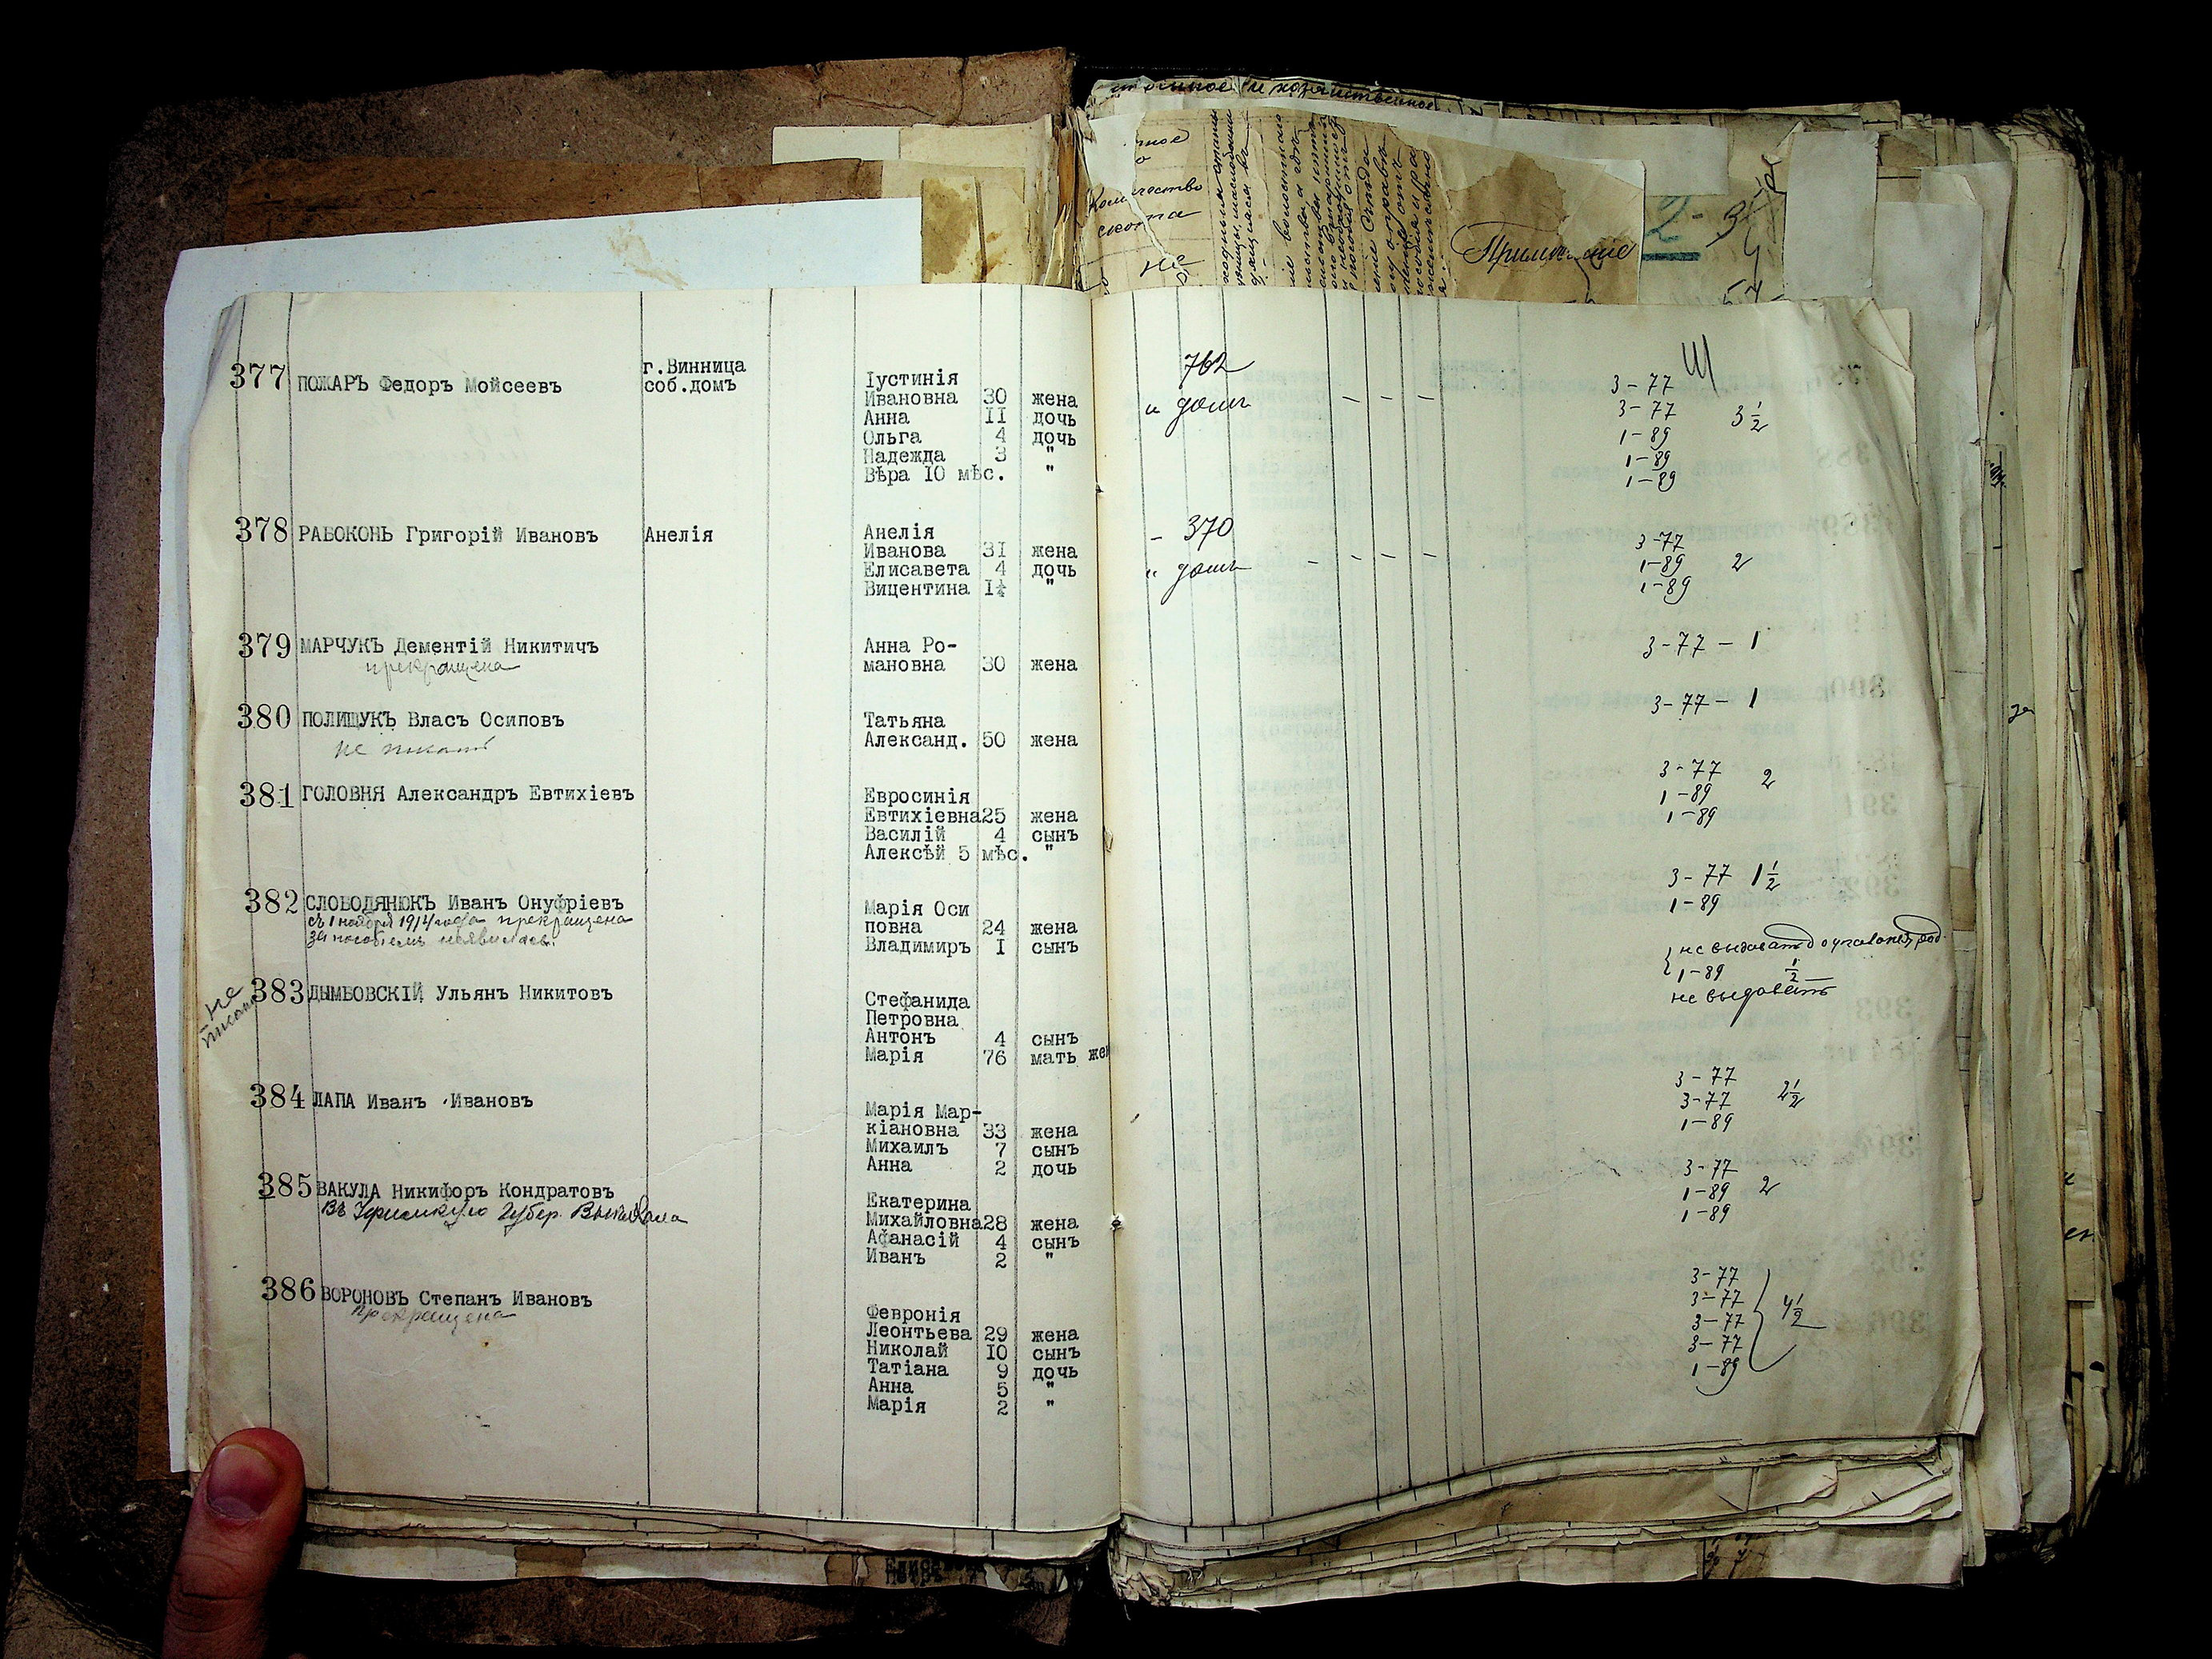 помное и хозяйственное
Количество
скота
не
Примечание
2 - 3
377 ПОЖАРЪ Федоръ Мойсеевъ
г.Винница
соб.домъ
Іустинія
Ивановна 30 жена
Анна II дочь
Ольга 4 дочь
Надежда 3 "
Вѣра IO мѣс. "
762
и домъ - - -
Ш
3-77
3-77 3 1/2
1-89
1-89
1-89
378 РАБОКОНЬ Григорій Ивановъ
Анелія
Анелія
Иванова 31 жена
Елисавета 4 дочь
Вицентина I½ "
- 370
" домъ - - - -
3-77
1-89 2
1-89
379 МАРЧУКЪ Дементій Никитичъ
прекращена
Анна Ро-
мановна 30 жена
3-77 - 1
380 ПОЛИЩУКЪ Власъ Осиповъ
не писать
Татьяна
Александ. 50 жена
3-77 - 1
381 ГОЛОВНЯ Александръ Евтихіевъ
Евросинія
Евтихіевна 25 жена
Василій 4 сынъ
Алексѣй 5 мѣс. "
3-77 2
1-89
1-89
382 СЛОБОДЯНЮКЪ Иванъ Онуфріевъ
съ 1 ноября 1914 года прекращена
за пособіемъ неявилась.
Марія Оси
повна 24 жена
Владимиръ I сынъ
3-77 1 1/2
1-89
не писать
383 ДЫМБОВСКІЙ Ульянъ Никитовъ
Стефанида
Петровна
Антонъ 4 сынъ
Марія 76 мать жен
не выдавать
1-89 1/2
не выдавать
384 ЛАПА Иванъ Ивановъ
Марія Мар-
кіановна 33 жена
Михаилъ 7 сынъ
Анна 2 дочь
3-77
3-77 2 1/2
1-89
385 ВАКУЛА Никифоръ Кондратовъ
Въ Уфимскую Губер. Выбыла
Екатерина
Михайловна 28 жена
Афанасій 4 сынъ
Иванъ 2 "
3-77
1-89 2
1-89
386 ВОРОНОВЪ Степанъ Ивановъ
прекращена
Февронія
Леонтьева 29 жена
Николай IO сынъ
Татіана 9 дочь
Анна 5 "
Марія 2 "
3-77
3-77
3-77 4 1/2
3-77
1-89